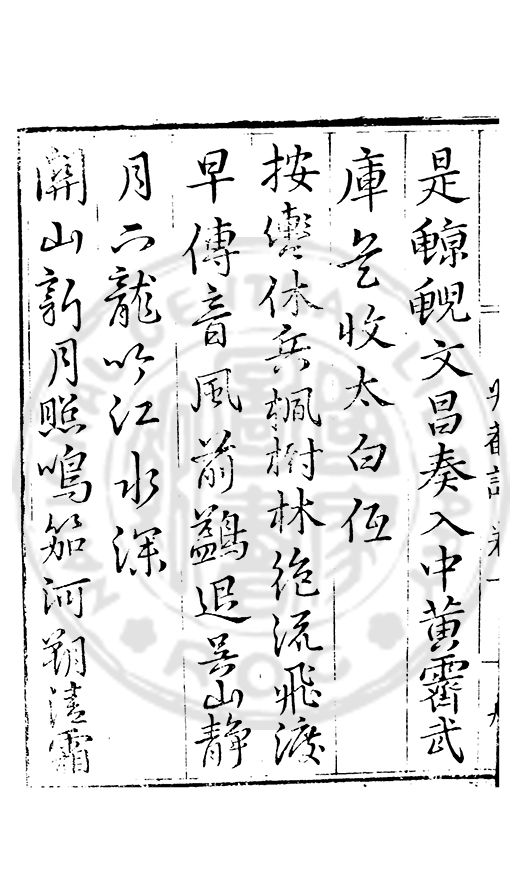 是鯨鯢文昌奏入中黃霽武
庫兵收太白低
按轡休兵楓樹林絶流飛渡
早傳音風前鷁退吳山靜
月下龍吟江水深
關山新月照鳴笳河朔清霜